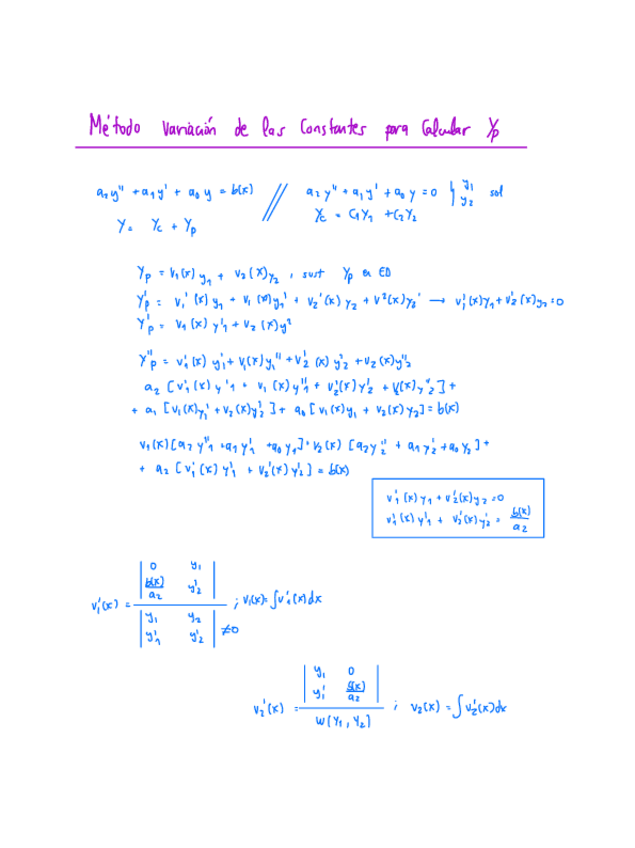 Método Variación de las Constantes para Calcular Yp
a₂y'' + a₁y' + a₀y = b(x) // a₂y'' + a₁y' + a₀y = 0 } y₁ y₂ sol
Y = Yc + Yp Yc = C₁Y₁ + C₂Y₂
Yp = v₁(x) y₁ + v₂(x) y₂ , sust Yp en ED
Y'p = v₁'(x) y₁ + v₁(x) y₁' + v₂'(x) y₂ + v²(x) y₂' → v₁'(x) y₁ + v₂'(x) y₂ = 0
Y'p = v₁(x) y'₁ + v₂(x) y²
Y''p = v'₁(x) y'₁ + v₁(x) y₁'' + v'₂(x) y'₂ + v₂(x) y''₂
a₂ [v'₁(x) y'₁ + v₁(x) y''₁ + v'₂(x) y'₂ + v₂(x) y''₂] +
+ a₁ [v₁(x) y'₁ + v₂(x) y'₂] + a₀ [v₁(x) y₁ + v₂(x) y₂] = b(x)
v₁(x) [a₂ y''₁ + a₁ y'₁ + a₀ y₁] + v₂(x) [a₂ y''₂ + a₁ y'₂ + a₀ y₂] +
+ a₂ [v'₁(x) y'₁ + v₂'(x) y'₂] = b(x)
v'₁(x) y₁ + v'₂(x) y₂ = 0
v'₁(x) y'₁ + v'₂(x) y'₂ = b(x)/a₂
v₁'(x) = |0 y₁; b(x)/a₂ y'₂| / |y₁ y₂; y'₁ y'₂| ≠ 0 ; v₁(x) = ∫v'₁(x)dx
v₂'(x) = |y₁ 0; y'₁ b(x)/a₂| / W(Y₁, Y₂) ; v₂(x) = ∫v'₂(x)dx